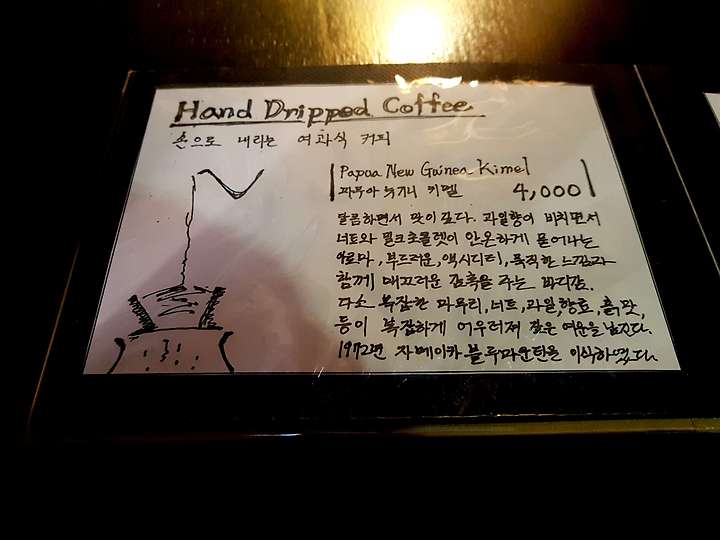 Hand Dripped Coffee
손으로 내리는 여과식 커피
Papua New Guinea Kimel
파푸아 뉴기니 키멜 4,000
달콤하면서 맛이 깊다. 과일향이 비치면서
너트와 밀크초콜렛이 은은하게 묻어나는
아로마, 부드러운, 액시디티, 묵직한 느낌과
함께 매끄러운 감촉을 주는 바디감.
다소 복잡한 마무리, 너트, 과일, 향료, 흙, 맛,
등이 복잡하게 어우러져 짙은 여운을 남긴다.
1972년 자메이카 블루마운틴을 이식하였다.